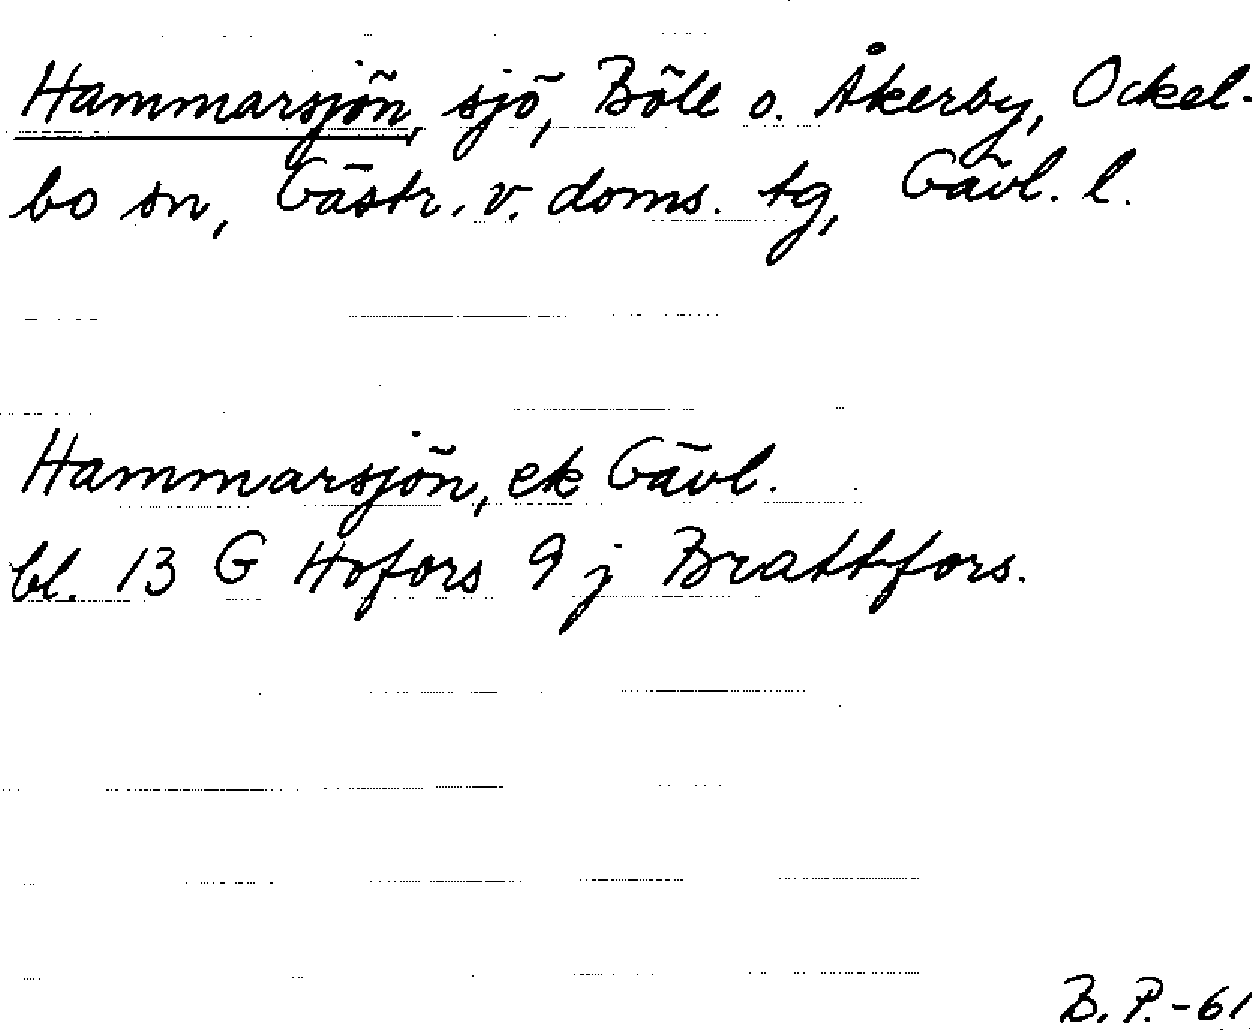 Hammarsjön, sjö, Böle o. Åkerby, Ockel-
bo sn, Gästr. v. doms. tg, Gävl. l.
Hammarsjön, ek Gävl.
bl. 13 G Hofors 9 j Brattfors.
B. P. -61